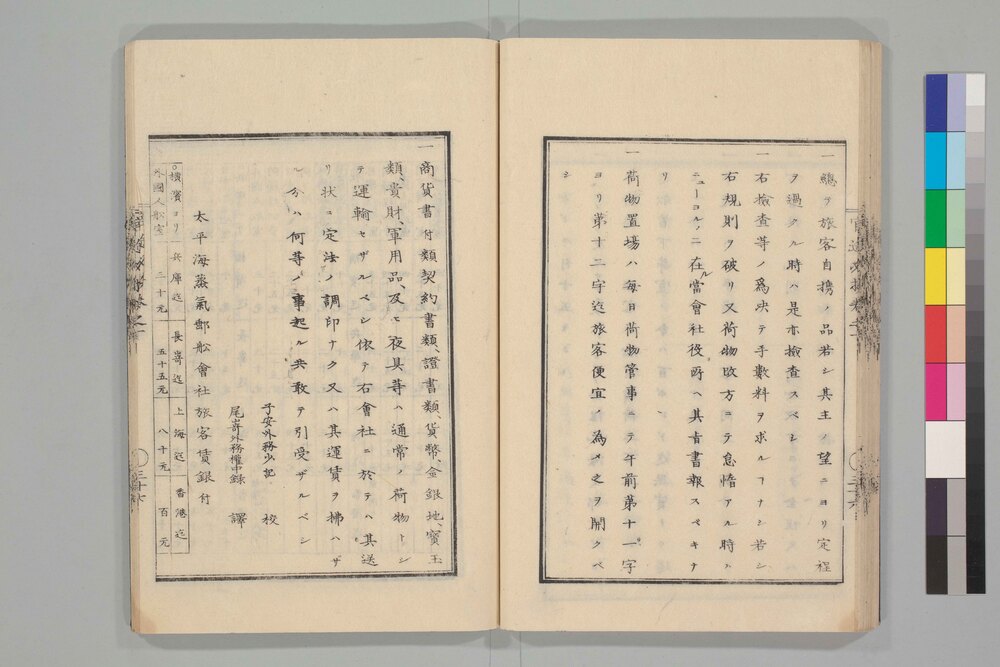 一 總テ旅客自携ノ品若シ其主ノ望ニヨリ定程
ヲ過クル時ハ是亦檢査スベシ
一 右檢査等ノ爲决テ手數料ヲ求ルコナシ若シ
右規則ヲ破リ又荷物改方ニテ怠惰アル時ハ
ニューヨルクニ在ル當會社役所ヘ其旨書報スベキナ
リ
一 荷物置場ハ每日荷物管事ニテ午前第十一字
ヨリ第十二字迄旅客便宜ノ為メ之ヲ開クベ
シ
一 商貨書付類契約書類、證書類、貨幣、金銀地、寶玉
類、貴財、軍用品、及ヒ夜具等ハ通常ノ荷物トシ
テ運輸セザルベシ依テ右會社ニ於テハ其送
リ狀ニ定法ノ調印ナク又ハ其運賃ヲ拂ハザ
ル分ハ何等ノ事起ル共敢テ引受ザルベシ
子安外務少記 校
尾嵜外務權中錄 譯
太平海蒸氣郵舩會社旅客賃銀付
○橫濱ヨリ 兵庫迄 長嵜迄 上海迄 香港迄
外國人舩室 三十元 五十五元 八十元 百元
三十六